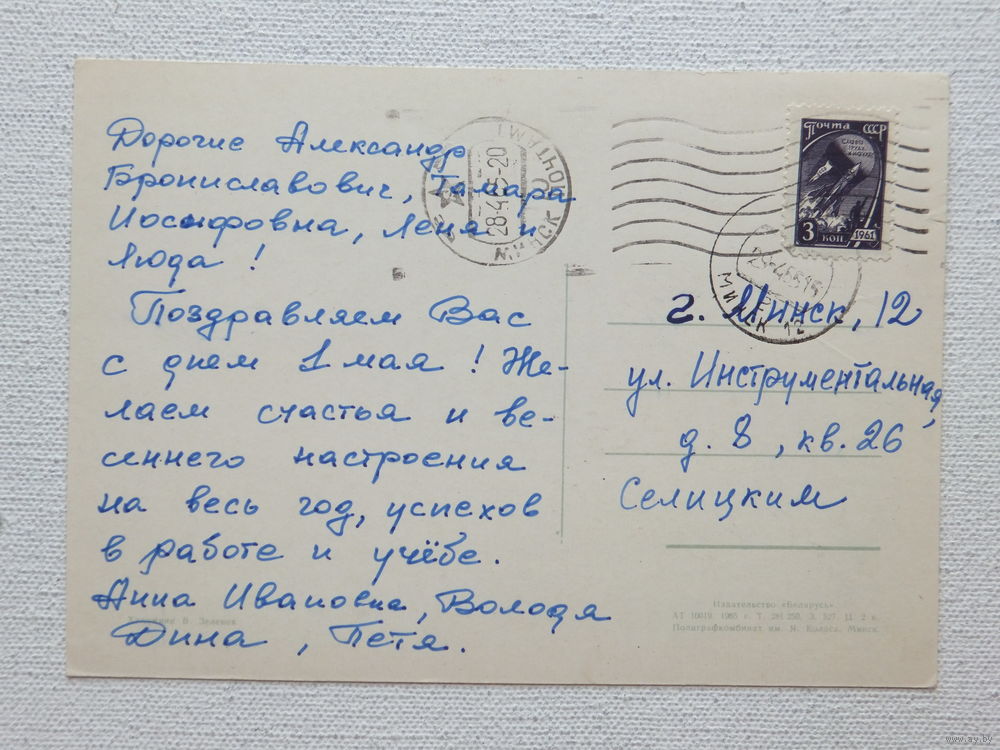 Дорогие Александр
Брониславович, Тамара
Иосифовна, Лёня и
Люда!
Поздравляем Вас
с днем 1 мая! Же-
лаем счастья и ве-
сеннего настроения
на весь год, успехов
в работе и учёбе.
Анна Ивановна, Володя
Дина, Петя.
В. Зеленев
МИНСК
ПОЧТАМТ
28-4 65-20
Почта СССР
3 КОП
1961
МИНСК 12
г. Минск, 12
ул. Инструментальная,
д. 8, кв. 26
Селицким
Издательство «Беларусь».
АТ 10019. 1965 г. Т. 281 250. З. 527. Ц. 2 к.
Полиграфкомбинат им. Я. Коласа. Минск.
www.ay.by